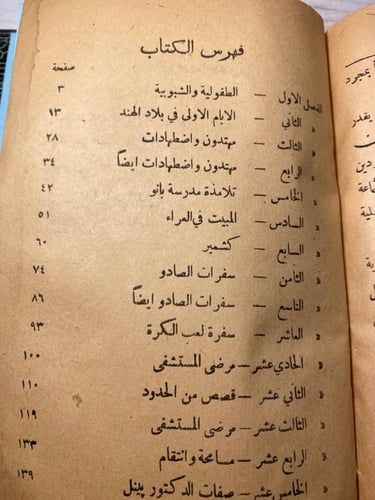 فهرس الكتاب
صفحة
الفصل الاول — الطفولية والشبوبية ٣
« الثاني — الايام الاولى في بلاد الهند ١٣
« الثالث — مهتدون واضطهادات ٢٨
« الرابع — مهتدون واضطهادات ايضاً ٣٤
« الخامس — تلامذة مدرسة بانو ٤٢
« السادس — المبيت في العراء ٥١
« السابع — كشمير ٦٠
« الثامن — سفرات الصادو ٧٤
« التاسع — سفرات الصادو ايضاً ٨٦
« العاشر — سفرة لعب الكرة ٩٣
« الحادي عشر — مرضى المستشفى ١٠٠
« الثاني عشر — قصص من الحدود ١١٠
« الثالث عشر — مرضى المستشفى ١١٩
« الرابع عشر — مسامحة وانتقام ١٣٣
« الخامس عشر — صفات الدكتور پينل ١٣٩
بمجرد
يقدر